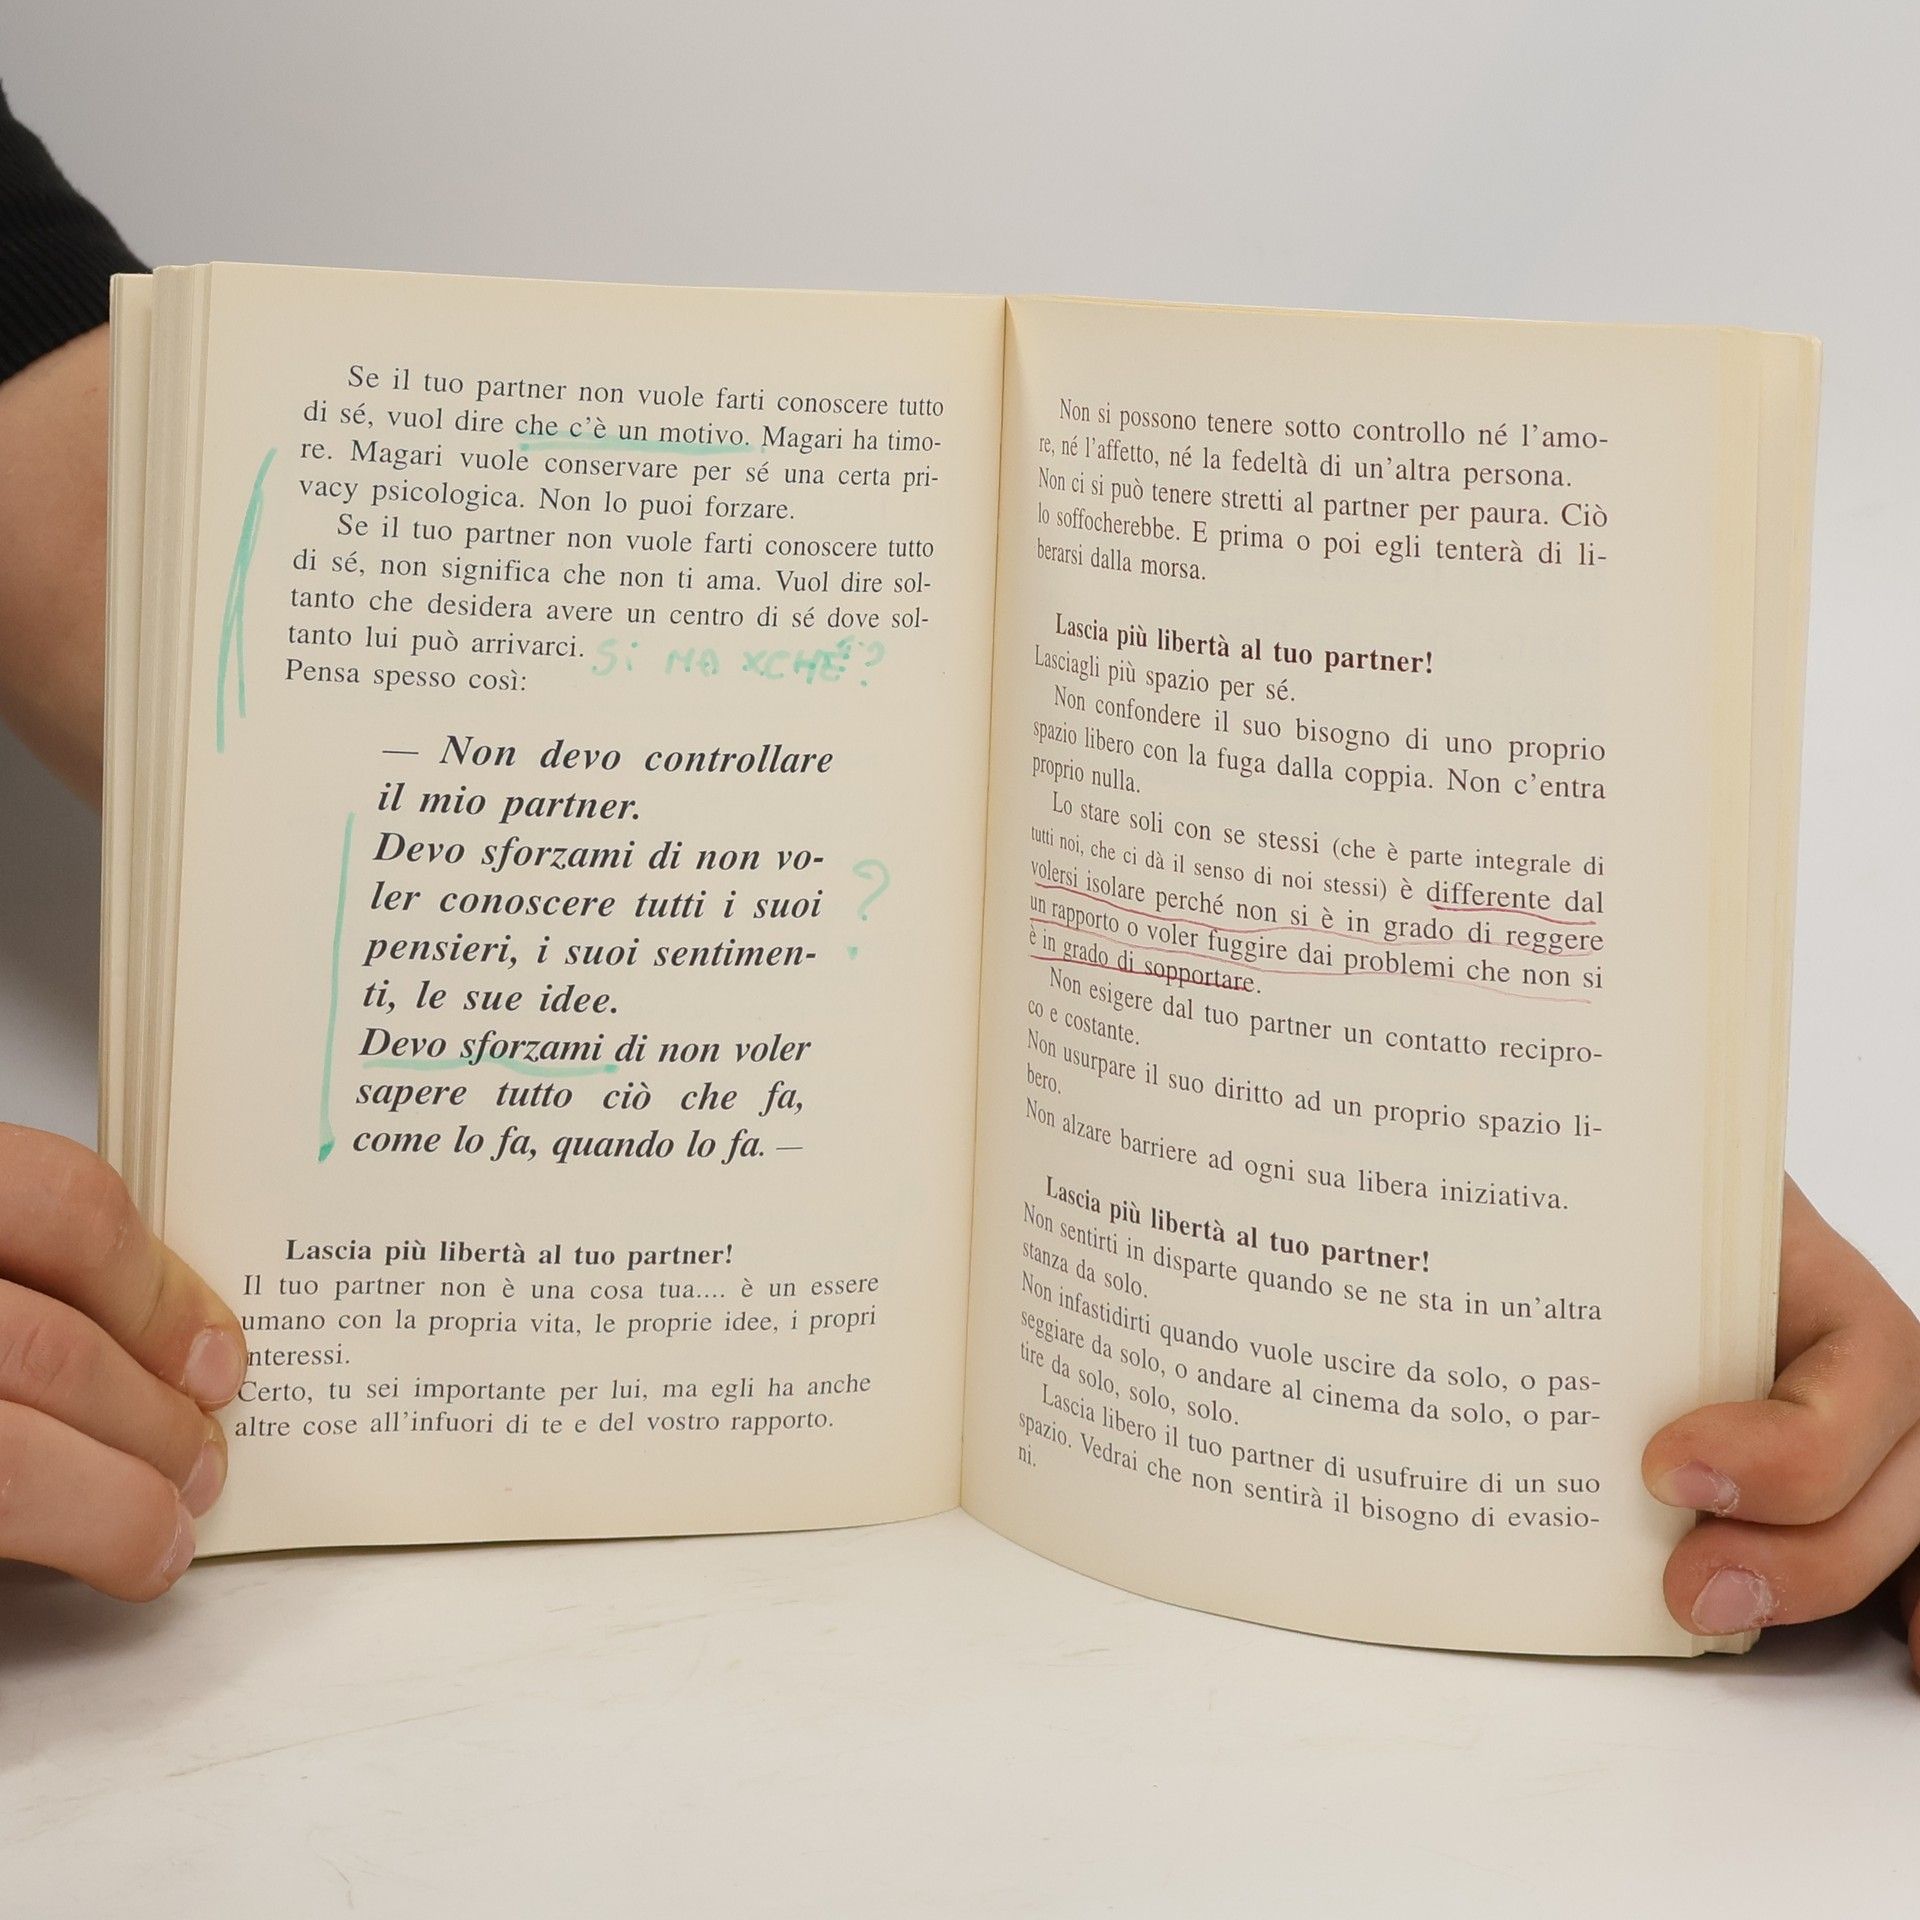 Se il tuo partner non vuole farti conoscere tutto
di sé, vuol dire che c'è un motivo. Magari ha timo-
re. Magari vuole conservare per sé una certa pri-
vacy psicologica. Non lo puoi forzare.
Se il tuo partner non vuole farti conoscere tutto
di sé, non significa che non ti ama. Vuol dire sol-
tanto che desidera avere un centro di sé dove sol-
tanto lui può arrivarci. Si MA XCHÉ?
Pensa spesso così:
— Non devo controllare
il mio partner.
Devo sforzami di non vo-
ler conoscere tutti i suoi ?
pensieri, i suoi sentimen-
ti, le sue idee.
Devo sforzami di non voler
sapere tutto ciò che fa,
come lo fa, quando lo fa. —
Lascia più libertà al tuo partner!
Il tuo partner non è una cosa tua.... è un essere
umano con la propria vita, le proprie idee, i propri
nteressi.
Certo, tu sei importante per lui, ma egli ha anche
altre cose all'infuori di te e del vostro rapporto.
Non si possono tenere sotto controllo né l'amo-
re, né l'affetto, né la fedeltà di un'altra persona.
Non ci si può tenere stretti al partner per paura. Ciò
lo soffocherebbe. E prima o poi egli tenterà di li-
berarsi dalla morsa.
Lascia più libertà al tuo partner!
Lasciagli più spazio per sé.
Non confondere il suo bisogno di uno proprio
spazio libero con la fuga dalla coppia. Non c'entra
proprio nulla.
Lo stare soli con se stessi (che è parte integrale di
tutti noi, che ci dà il senso di noi stessi) è differente dal
volersi isolare perché non si è in grado di reggere
un rapporto o voler fuggire dai problemi che non si
è in grado di sopportare.
Non esigere dal tuo partner un contatto recipro-
co e costante.
Non usurpare il suo diritto ad un proprio spazio li-
bero.
Non alzare barriere ad ogni sua libera iniziativa.
Lascia più libertà al tuo partner!
Non sentirti in disparte quando se ne sta in un'altra
stanza da solo.
Non infastidirti quando vuole uscire da solo, o pas-
seggiare da solo, o andare al cinema da solo, o par-
tire da solo, solo, solo.
Lascia libero il tuo partner di usufruire di un suo
spazio. Vedrai che non sentirà il bisogno di evasio-
ni.